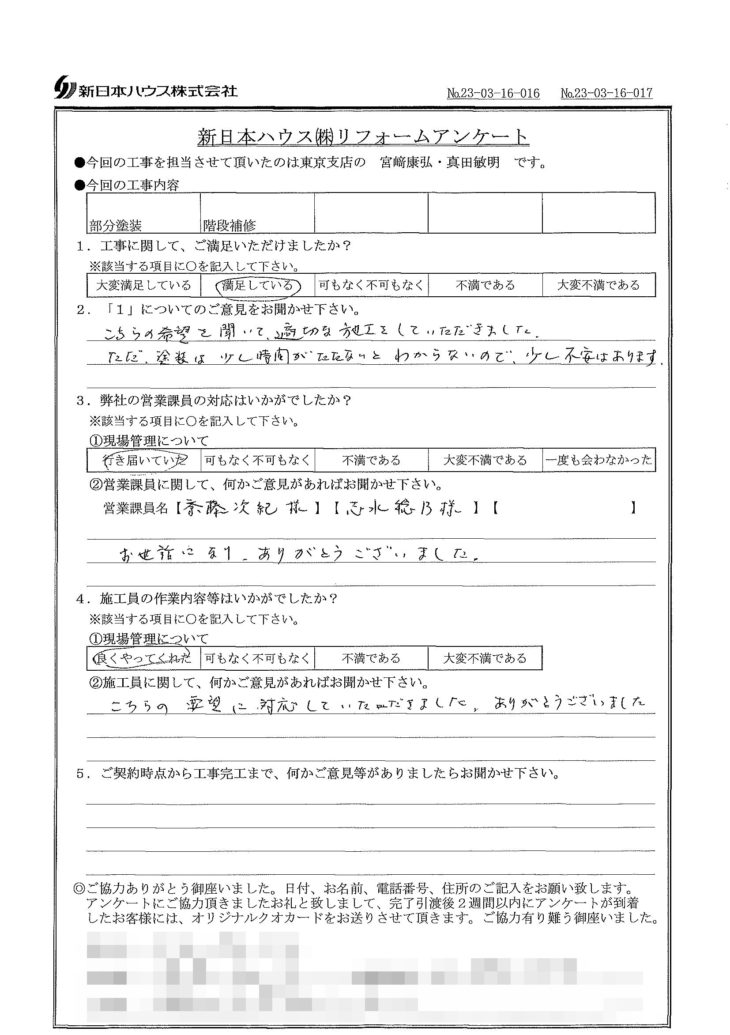 新日本ハウス株式会社
No.23-03-16-016 No.23-03-16-017
新日本ハウス㈱リフォームアンケート
●今回の工事を担当させて頂いたのは東京支店の 宮﨑康弘・真田敏明 です。
●今回の工事内容
部分塗装 階段補修
1．工事に関して、ご満足いただけましたか？
※該当する項目に○を記入して下さい。
大変満足している 満足している 可もなく不可もなく 不満である 大変不満である
2．「1」についてのご意見をお聞かせ下さい。
こちらの希望を聞いて、適切な施工をしていただきました。
ただ、塗装は少し時間がたたないとわからないので、少し不安はあります。
3．弊社の営業課員の対応はいかがでしたか？
※該当する項目に○を記入して下さい。
①現場管理について
行き届いていた 可もなく不可もなく 不満である 大変不満である 一度も会わなかった
②営業課員に関して、何かご意見があればお聞かせ下さい。
営業課員名【斎藤次紀 様】【志水稔乃様 】【 】
お世話になり、ありがとうございました。
4．施工員の作業内容等はいかがでしたか？
※該当する項目に○を記入して下さい。
①現場管理について
良くやってくれた 可もなく不可もなく 不満である 大変不満である
②施工員に関して、何かご意見があればお聞かせ下さい。
こちらの要望に対応していただきました。ありがとうございました
5．ご契約時点から工事完工まで、何かご意見等がありましたらお聞かせ下さい。
◎ご協力ありがとう御座いました。日付、お名前、電話番号、住所のご記入をお願い致します。
アンケートにご協力頂きましたお礼と致しまして、完了引渡後2週間以内にアンケートが到着
したお客様には、オリジナルクオカードをお送りさせて頂きます。ご協力有り難う御座いました。